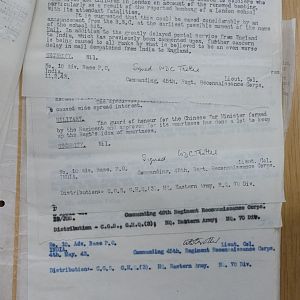 in London on account of the renewed
particularly as a result of the reported bombing of a London
with its attendant fatalities.
It is suggested that this could be eased considerably by an
announcement from the B.B.C. at the earliest possible moment of the
In addition to the greatly delayed postal service from England
to India, which has previously been commented upon, further concern
is being caused to all Ranks by what is believed to be an even worse
delay in mail despatched from India to England.
SECURITY. Nil.
No. 10 Adv. Base P.O.
INDIA.
Signed
Lieut. Col.
Commanding, 45th, Regt. Reconnaissance Corps.
cause wide spread interest.
MILITARY. The guard of honour for the Chinese War Minister formed
by the Regiment and approval of its smartness has done a lot to keep
up the Regiments idea of smartness.
SECURITY. Nil.
Signed
No. 10 Adv. Base, P.O.
INDIA.
Lieut. Col.
Commanding, 45th, Regt. Reconnaissance Corps.
Distribution- C.G.S. G.H.Q.(I) Hq. Eastern Army, H.Q. 70 Div.
Commanding 45th Regiment Reconnaissance Corps.
Distribution - C.G.S., G.H.Q.(I) Hq. Eastern Army; Hq. 70 Div.
No. 10, Adv. Base, P.O.
INDIA.
4th. May, 43.
Lieut. Col.
Commanding 45th, Regiment Reconnaissance Corps.
Distribution- C.G.S. G.H.Q.(I) Hq. Eastern Army, H.Q. 70 Div.